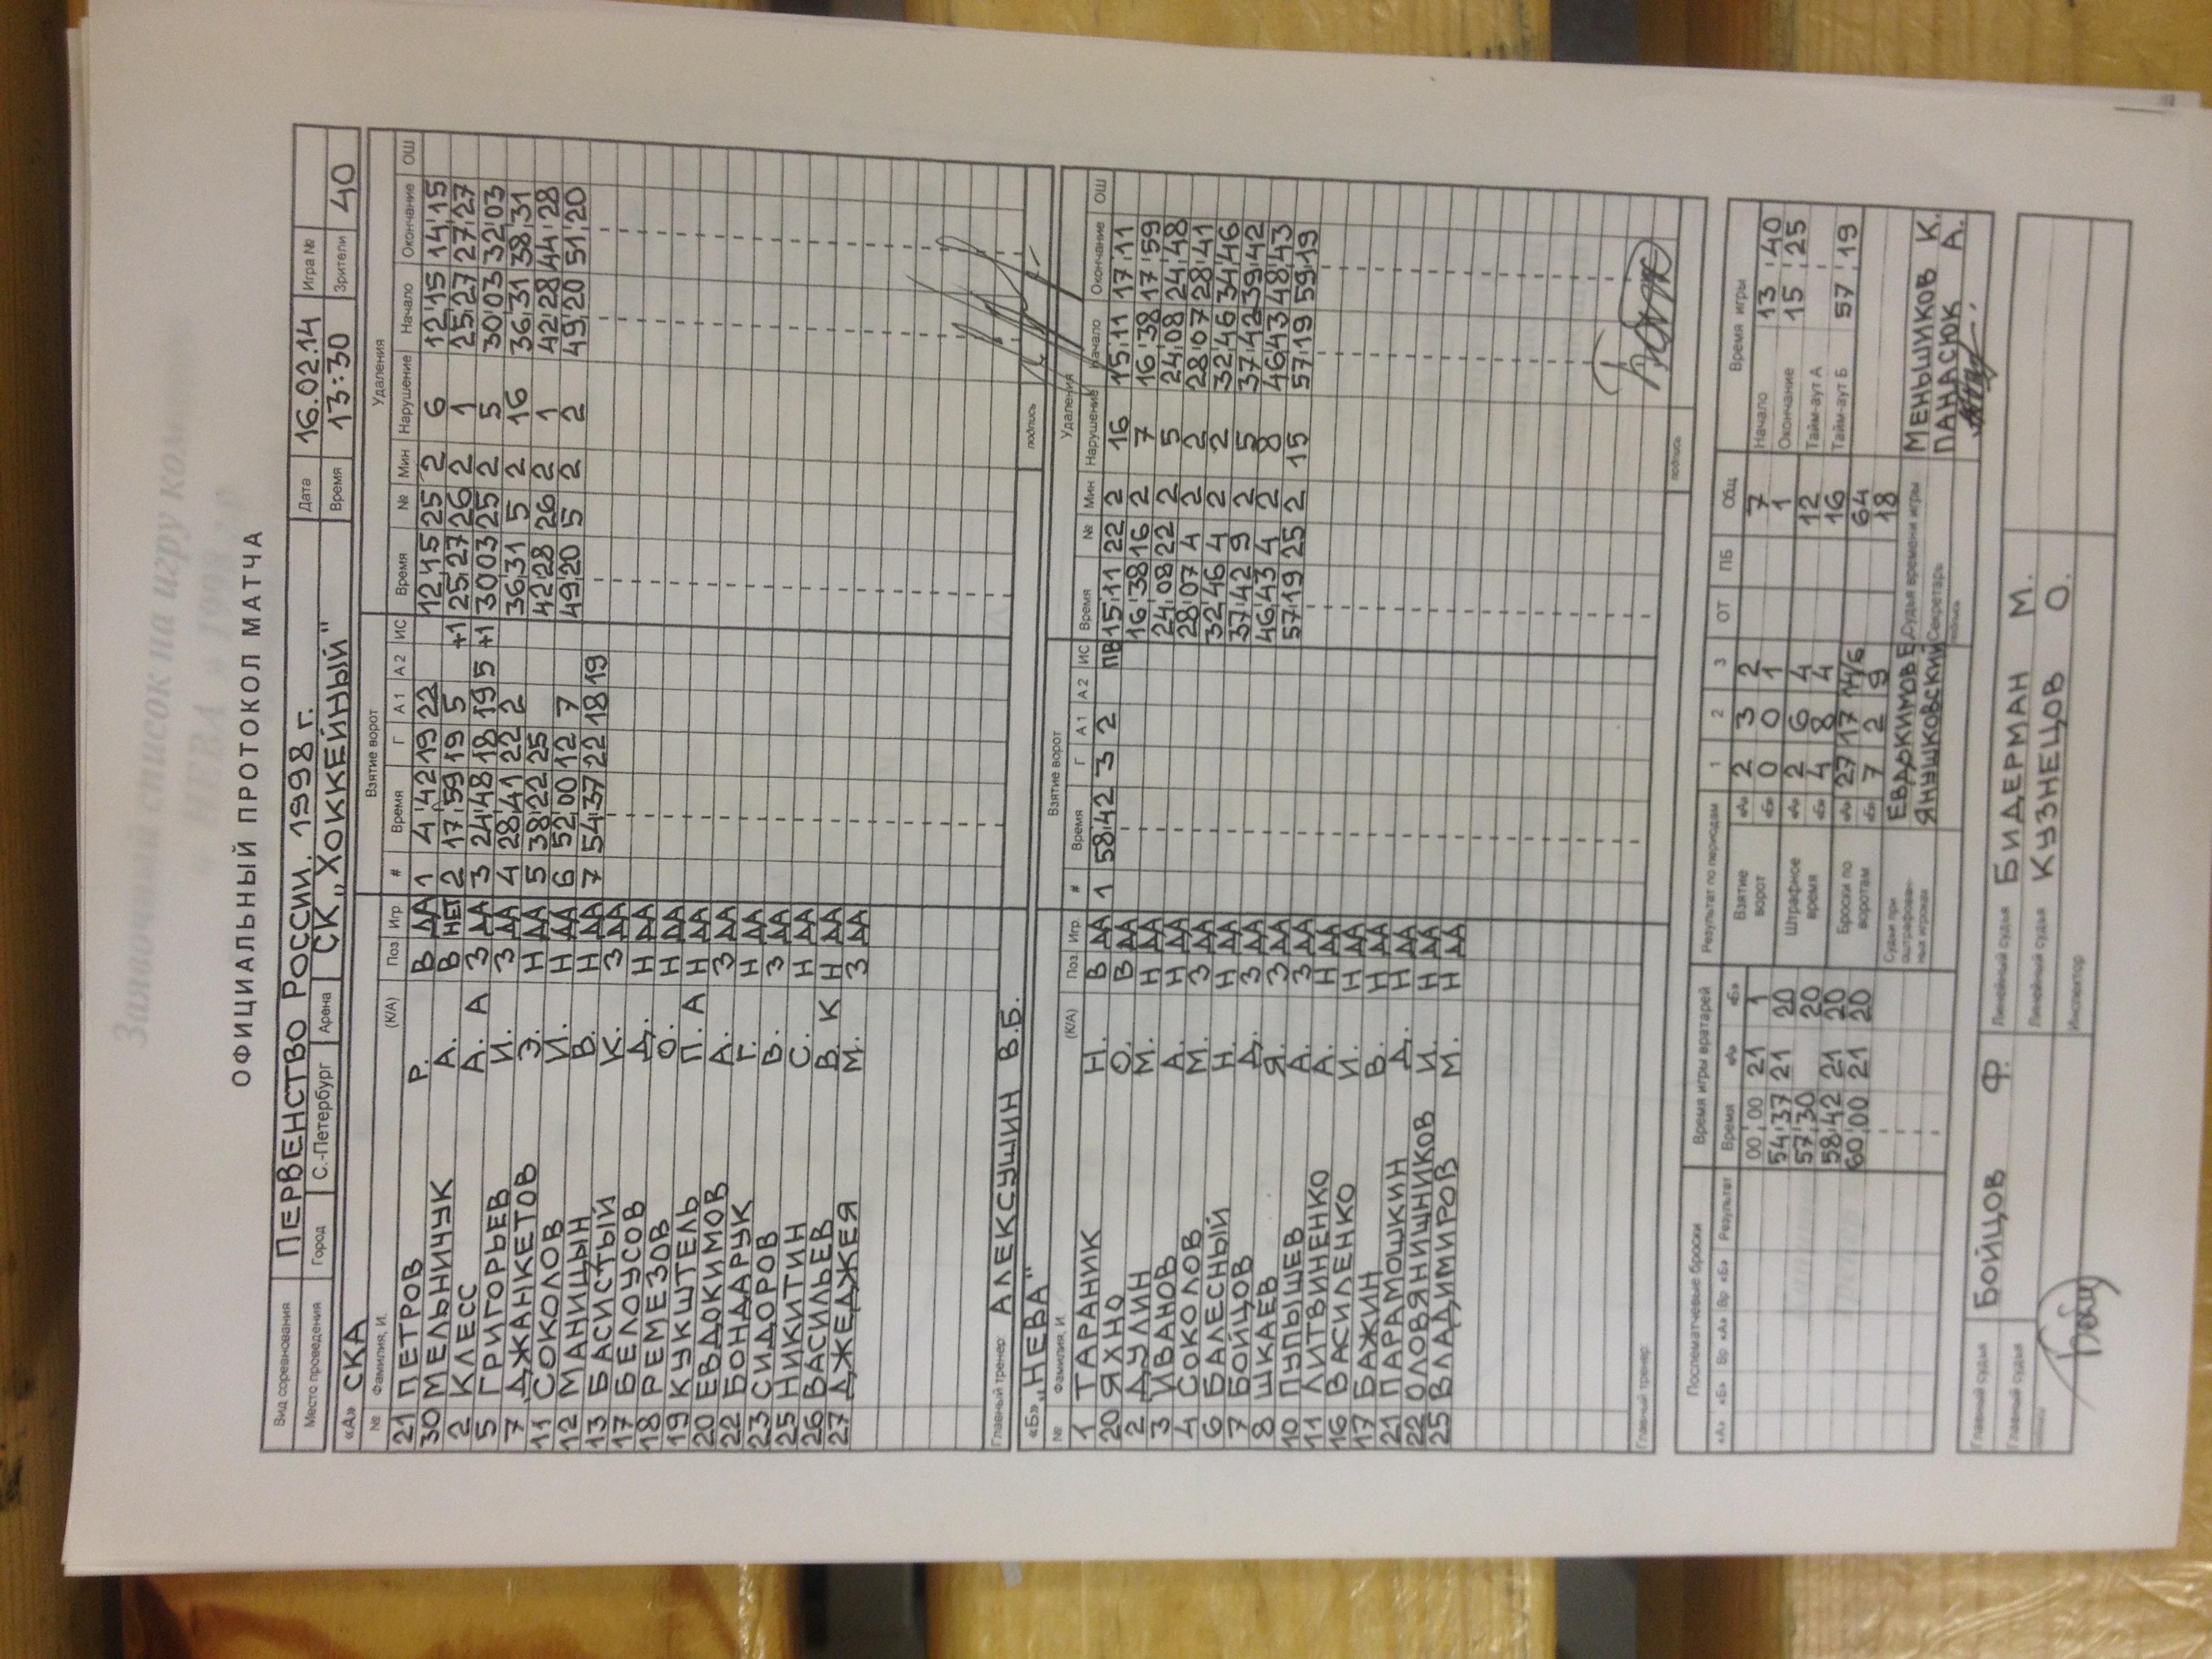 ОФИЦИАЛЬНЫЙ ПРОТОКОЛ МАТЧА
Вид соревнования ПЕРВЕНСТВО РОССИИ. 1998 г. Дата 16.02.14 Игра №
Место проведения Город С.-Петербург Арена СК „ХОККЕЙНЫЙ" Время 13:30 Зрители 40
«А» СКА Взятие ворот Удаления
№ Фамилия, И. (К/А) Поз Игр # Время Г А1 А2 ИС Время № Мин Нарушение Начало Окончание ОШ
21 ПЕТРОВ Р. В ДА 1 4 42 19 22 12 15 25 2 6 12 15 14 15
30 МЕЛЬНИЧУК А. В НЕТ 2 17 59 19 5 +1 25 27 26 2 1 25 27 27 27
2 КЛЕСС А. А З ДА 3 24 48 18 19 5 +1 30 03 25 2 5 30 03 32 03
5 ГРИГОРЬЕВ И. З ДА 4 28 41 22 2 36 31 5 2 16 36 31 38 31
7 ДЖАНКЕТОВ Э. Н ДА 5 38 22 25 42 28 26 2 1 42 28 44 28
11 СОКОЛОВ И. Н ДА 6 52 00 12 7 49 20 5 2 2 49 20 51 20
12 МАНИЦЫН В. Н ДА 7 54 37 22 18 19
13 БАСИСТЫЙ К. З ДА
17 БЕЛОУСОВ Д. Н ДА
18 РЕМЕЗОВ О. Н ДА
19 КУКШТЕЛЬ П. А Н ДА
20 ЕВДОКИМОВ А. З ДА
22 БОНДАРУК Г. Н ДА
23 СИДОРОВ В. З ДА
25 НИКИТИН С. Н ДА
26 ВАСИЛЬЕВ В К Н ДА
27 ДЖЕДЖЕЯ М. З ДА
Главный тренер: АЛЕКСУШИН В.Б. подпись
«Б» „НЕВА" Взятие ворот Удаления
№ Фамилия, И (К/А) Поз. Игр # Время Г А1 А2 ИС Время № Мин Нарушение Начало Окончание ОШ
1 ТАРАНИК Н. В ДА 1 58 42 3 2 ПВ 15 11 22 2 16 15 11 17 11
20 ЯХНО О. В ДА 16 38 16 2 7 16 38 17 59
2 ДУЛИН М. Н ДА 24 08 22 2 5 24 08 24 48
3 ИВАНОВ А. Н ДА 28 07 4 2 2 28 07 28 41
4 СОКОЛОВ М. З ДА 32 46 4 2 2 32 46 34 46
6 БАЛЕСНЫЙ Н. Н ДА 37 42 9 2 5 37 42 39 42
7 БОЙЦОВ Д. З ДА 46 43 4 2 8 46 43 48 43
8 ШКАЕВ Я. З ДА 57 19 25 2 15 57 19 59 19
10 ПУПЫШЕВ А. З ДА
11 ЛИТВИНЕНКО А. Н ДА
16 ВАСИЛЕНКО И. Н ДА
17 БАЖИН В. Н ДА
21 ПАРАМОШКИН Д. Н ДА
22 ОЛОВЯНИШНИКОВ И. Н ДА
25 ВЛАДИМИРОВ М. Н ДА
Главный тренер: подпись
Послематчевые броски Время игры вратарей Результат по периодам 1 2 3 ОТ ПБ Общ Время игры
«А» «Б» Вр «А» Вр «Б» Результат Время «А» «Б»
00 00 21 1
54 37 21 20
57 30 20
58 42 21 20
60 00 21 20
Взятие ворот «А» 2 3 2 7
«Б» 0 0 1 1
Штрафное время «А» 2 6 4 12
«Б» 4 8 4 16
Броски по воротам «А» 27 17 64
«Б» 7 2 9 18
Начало 13 40
Окончание 15 25
Тайм-аут А
Тайм-аут Б 57 19
Судьи при оштрафованных игроках ЕВДОКИМОВ Е. Судья времени игры МЕНЬШИКОВ К.
ЯНУШКОВСКИЙ Секретарь ПАНАСЮК А.
Главный судья БОЙЦОВ Ф. Линейный судья БИДЕРМАН М.
Главный судья Линейный судья КУЗНЕЦОВ О.
Инспектор